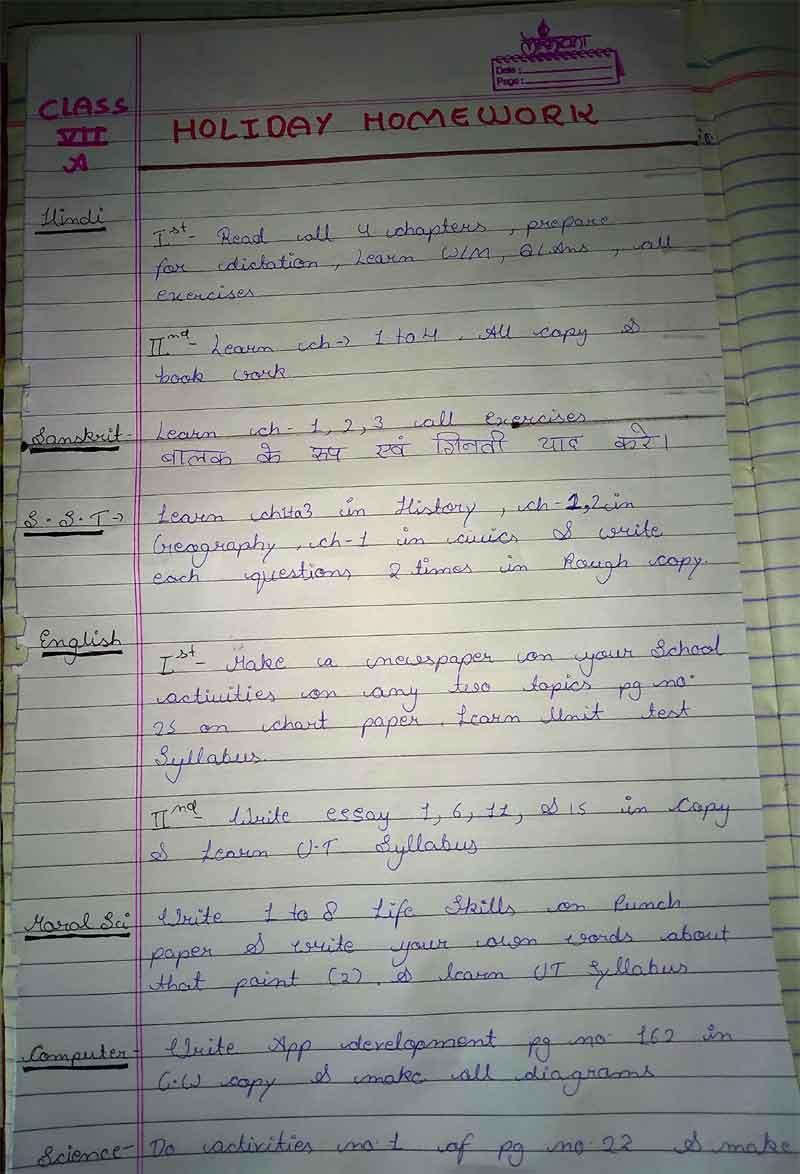 CLASS
VII
A
HOLIDAY HOMEWORK
Date:
Page:
Hindi
Ist- Read all 4 chapters, prepare
for dictation, Learn W/M, Q/Ans, all
exercises
IInd- Learn ch-> 1 to 4. All copy &
book work
Sanskrit- Learn ch- 1, 2, 3 all exercises
बालक के रूप एवं गिनती याद करे।
S.S.T-> Learn ch1to3 in History, ch-1,2 in
Geography, ch-1 in civics & write
each questions 2 times in Rough copy.
English
Ist- Make a newspaper on your School
activities on any two topics pg no.
25 on chart paper. Learn Unit test
Syllabus.
IInd- Write essay 1, 6, 11, & 15 in Copy
& Learn U.T Syllabus
Moral Sci Write 1 to 8 Life Skills on Punch
paper & write your own words about
that point (2). & learn UT Syllabus
Computer- Write App development pg no. 162 in
C.W copy & make all diagrams
Science- Do activities no.1 of pg no.22 & make